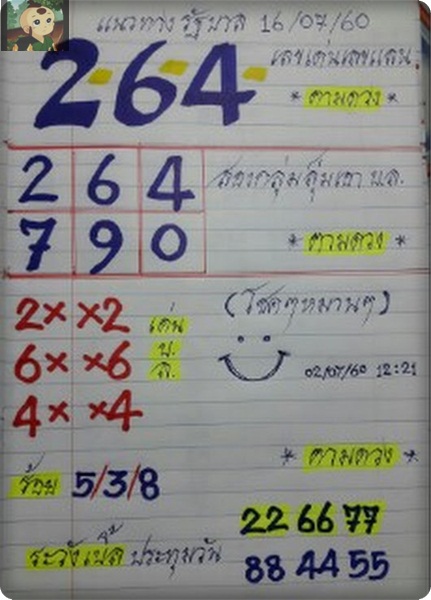 แนวทาง รัฐบาล 16/07/60
2-6-4-
เลขเด่นเลขแดน
* ตามดวง *
2 6 4
7 9 0
สลากลุ่มลุ้มเอา บ.ล.
* ตามดวง *
2× ×2 เด่น
6× ×6 บ.
4× ×4 ล.
(โชคๆหมานๆ)
02/07/60 12:21
* ตามดวง *
ร้อย 5/3/8
22 66 77
ระวังเบิ้ล ประทุมวัน
88 44 55